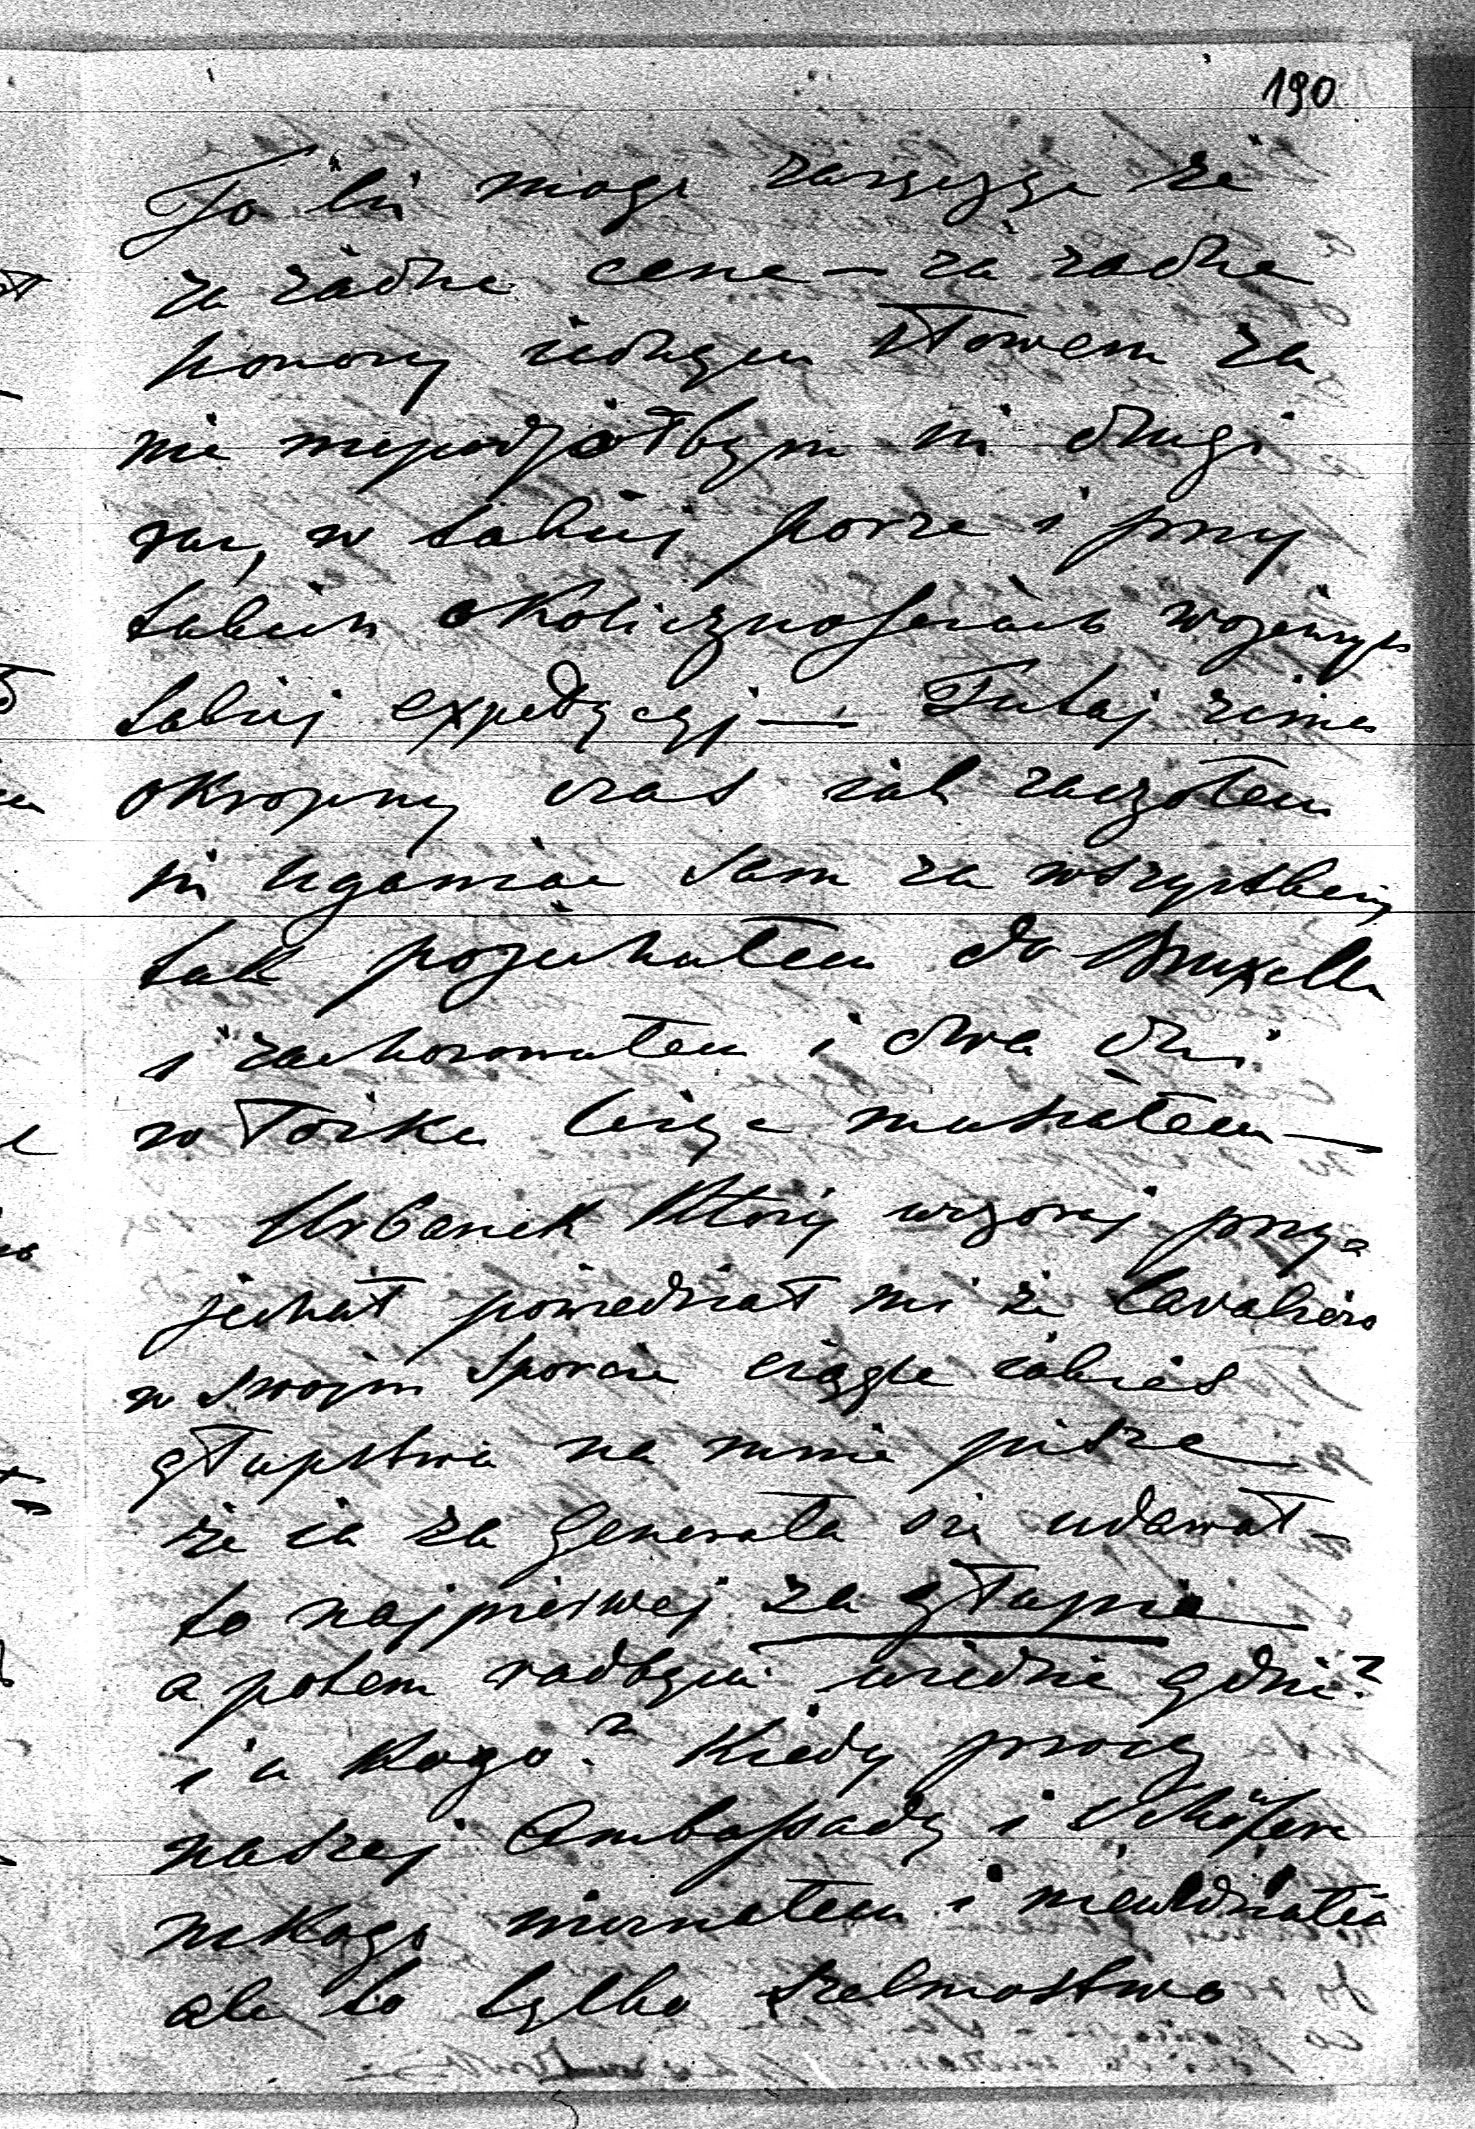 190
To Ci mogę zaręczyć że
za żadne cene — za żadne
honory iednym słowem za
nic niepodjąłbym się drugi
raz, w takiej porze i przy
takich okolicznościach wojennych
takiej expedycyj — Tutaj zimes
okropny czas iak zacząłem
się uganiać sam za wszystkiem
tak pojechałem do Bruxelli
i zachorowałem i dwa dni
w łóżku leżyć musiałem —
Urbanek który wczoraj przy=
jechał powiedział mi że Cavaliero
w swojm Sporcie ciągle iakieś
głupstwa na mnie pisze
że ia za Generała się udawał —
to najpierwej za głupie
a potem radbym wiedzieć gdzie?
i u kogo? Kiedy prócz
naszej Ambassady i Schäfera
nikogo nieznałem i niewidziałem
ale to tylko szelmostwo